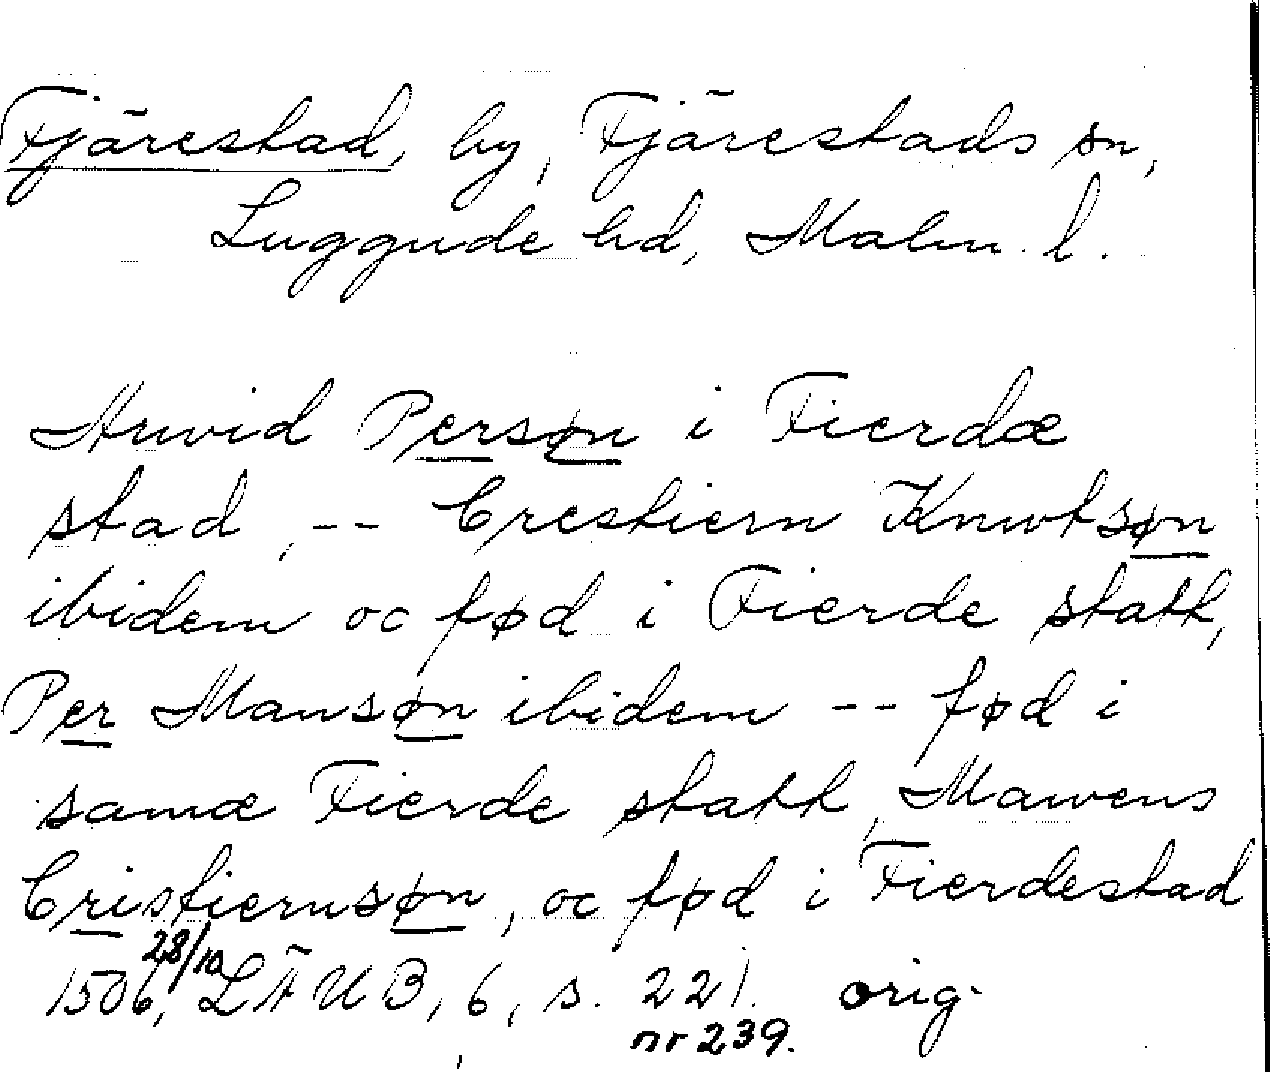 Fjärestad, by, Fjärestads sn,
Luggude hd, Malm. l.
Auvid Persøn i Fierdæ
stad, -- Crestiern Knwtsøn
ibidem oc fød i Fierde statt,
Per Mansøn ibidem -- fød i
samæ Fierde statt, Mawens
Cristiernsøn, oc fød i Fierdestad
1506 28/10, LÄUB, 6, s. 221. orig.
nr 239.